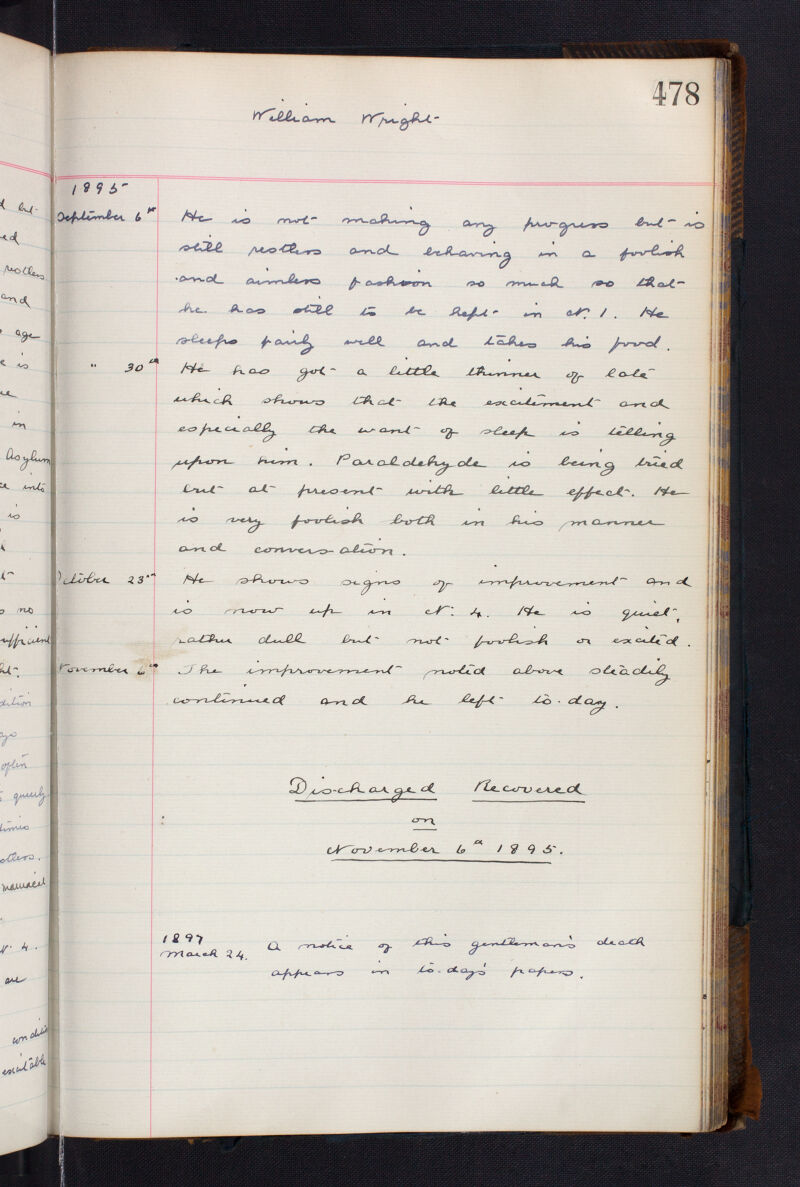 478
William Wright
1895
September 6th He is not making any progress but is
still restless and behaving in a foolish
and aimless fashion so much so that
he has still to be kept in N. 1. He
sleeps fairly well and takes his food.
" 30th He has got a little thinner of late
which shows that the excitement and
especially the want of sleep is telling
upon him. Paraldehyde is being tried
but at present with little effect. He
is very foolish both in his manner
and conversation.
October 23rd He shows signs of improvement and
is now up in N. 4. He is quiet,
rather dull but not foolish or excited.
November 6th The improvement noted above steadily
continued and he left to-day.
Discharged Recovered
on
November 6th 1895.
1897
March 24. A notice of this gentleman's death
appears in to-day's papers.
but
restless
and
age
is
in
Asylum
into
is
no
sufficient
often
quietly
times
restless.
maniacal
N. 4.
are
condition
excitable